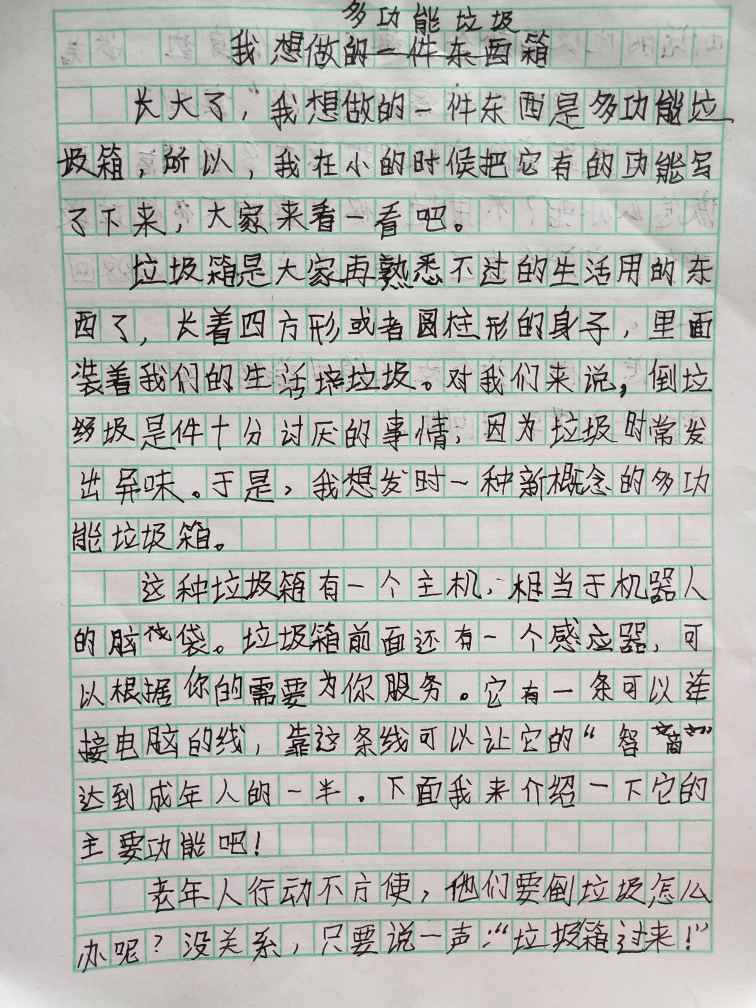 多功能垃圾
我想做的一件东西箱
长大了，我想做的一件东西是多功能垃
圾箱，所以，我在小的时候把它有的功能写
了下来，大家来看一看吧。
垃圾箱是大家再熟悉不过的生活用的东
西了，长着四方形或者圆柱形的身子，里面
装着我们的生活垃圾。对我们来说，倒垃
圾是件十分讨厌的事情，因为垃圾时常发
出异味。于是，我想发时一种新概念的多功
能垃圾箱。
这种垃圾箱有一个主机，相当于机器人
的脑袋。垃圾箱前面还有一个感应器，可
以根据你的需要为你服务。它有一条可以连
接电脑的线，靠这条线可以让它的“智商”
达到成年人的一半。下面我来介绍一下它的
主要功能吧！
老年人行动不方便，他们要倒垃圾怎么
办呢？没关系，只要说一声：“垃圾箱过来！”